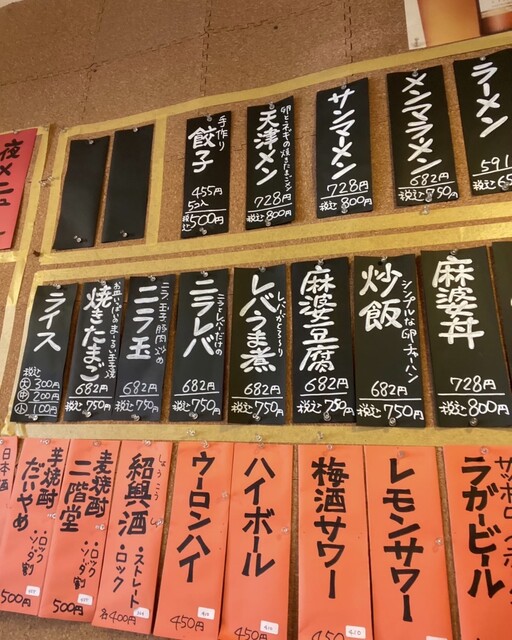 ラーメン
591
税込65
メンマラーメン
682円
税込750円
サンマーメン
728円
税込800円
天津メン
卵とネギの焼きたまごメン
728円
税込800円
手作り
餃子
455円
5コ入
税込500円
夜メニュー
麻婆丼
728円
税込800円
炒飯
シンプルな卵チャーハン
682円
税込750円
麻婆豆腐
682円
税込750円
レバうま煮
682円
税込750円
ニラレバ
ニラとレバーだけの
682円
税込750円
ニラ玉
ニラ玉子豚肉炒め
682円
税込750円
焼きたまご
682円
税込750円
ライス
税込
大300円
中200円
小100円
ラガービール
レモンサワー
450円
410
梅酒サワー
450円
410
ハイボール
450円
410
ウーロンハイ
450円
410
紹興酒
しょうこうしゅ
・ストレート
・ロック
各400円
麦焼酎
二階堂
・ロック
・ソーダ割
500円
芋焼酎
だいやめ
・ロック
・ソーダ割
500円
日本酒